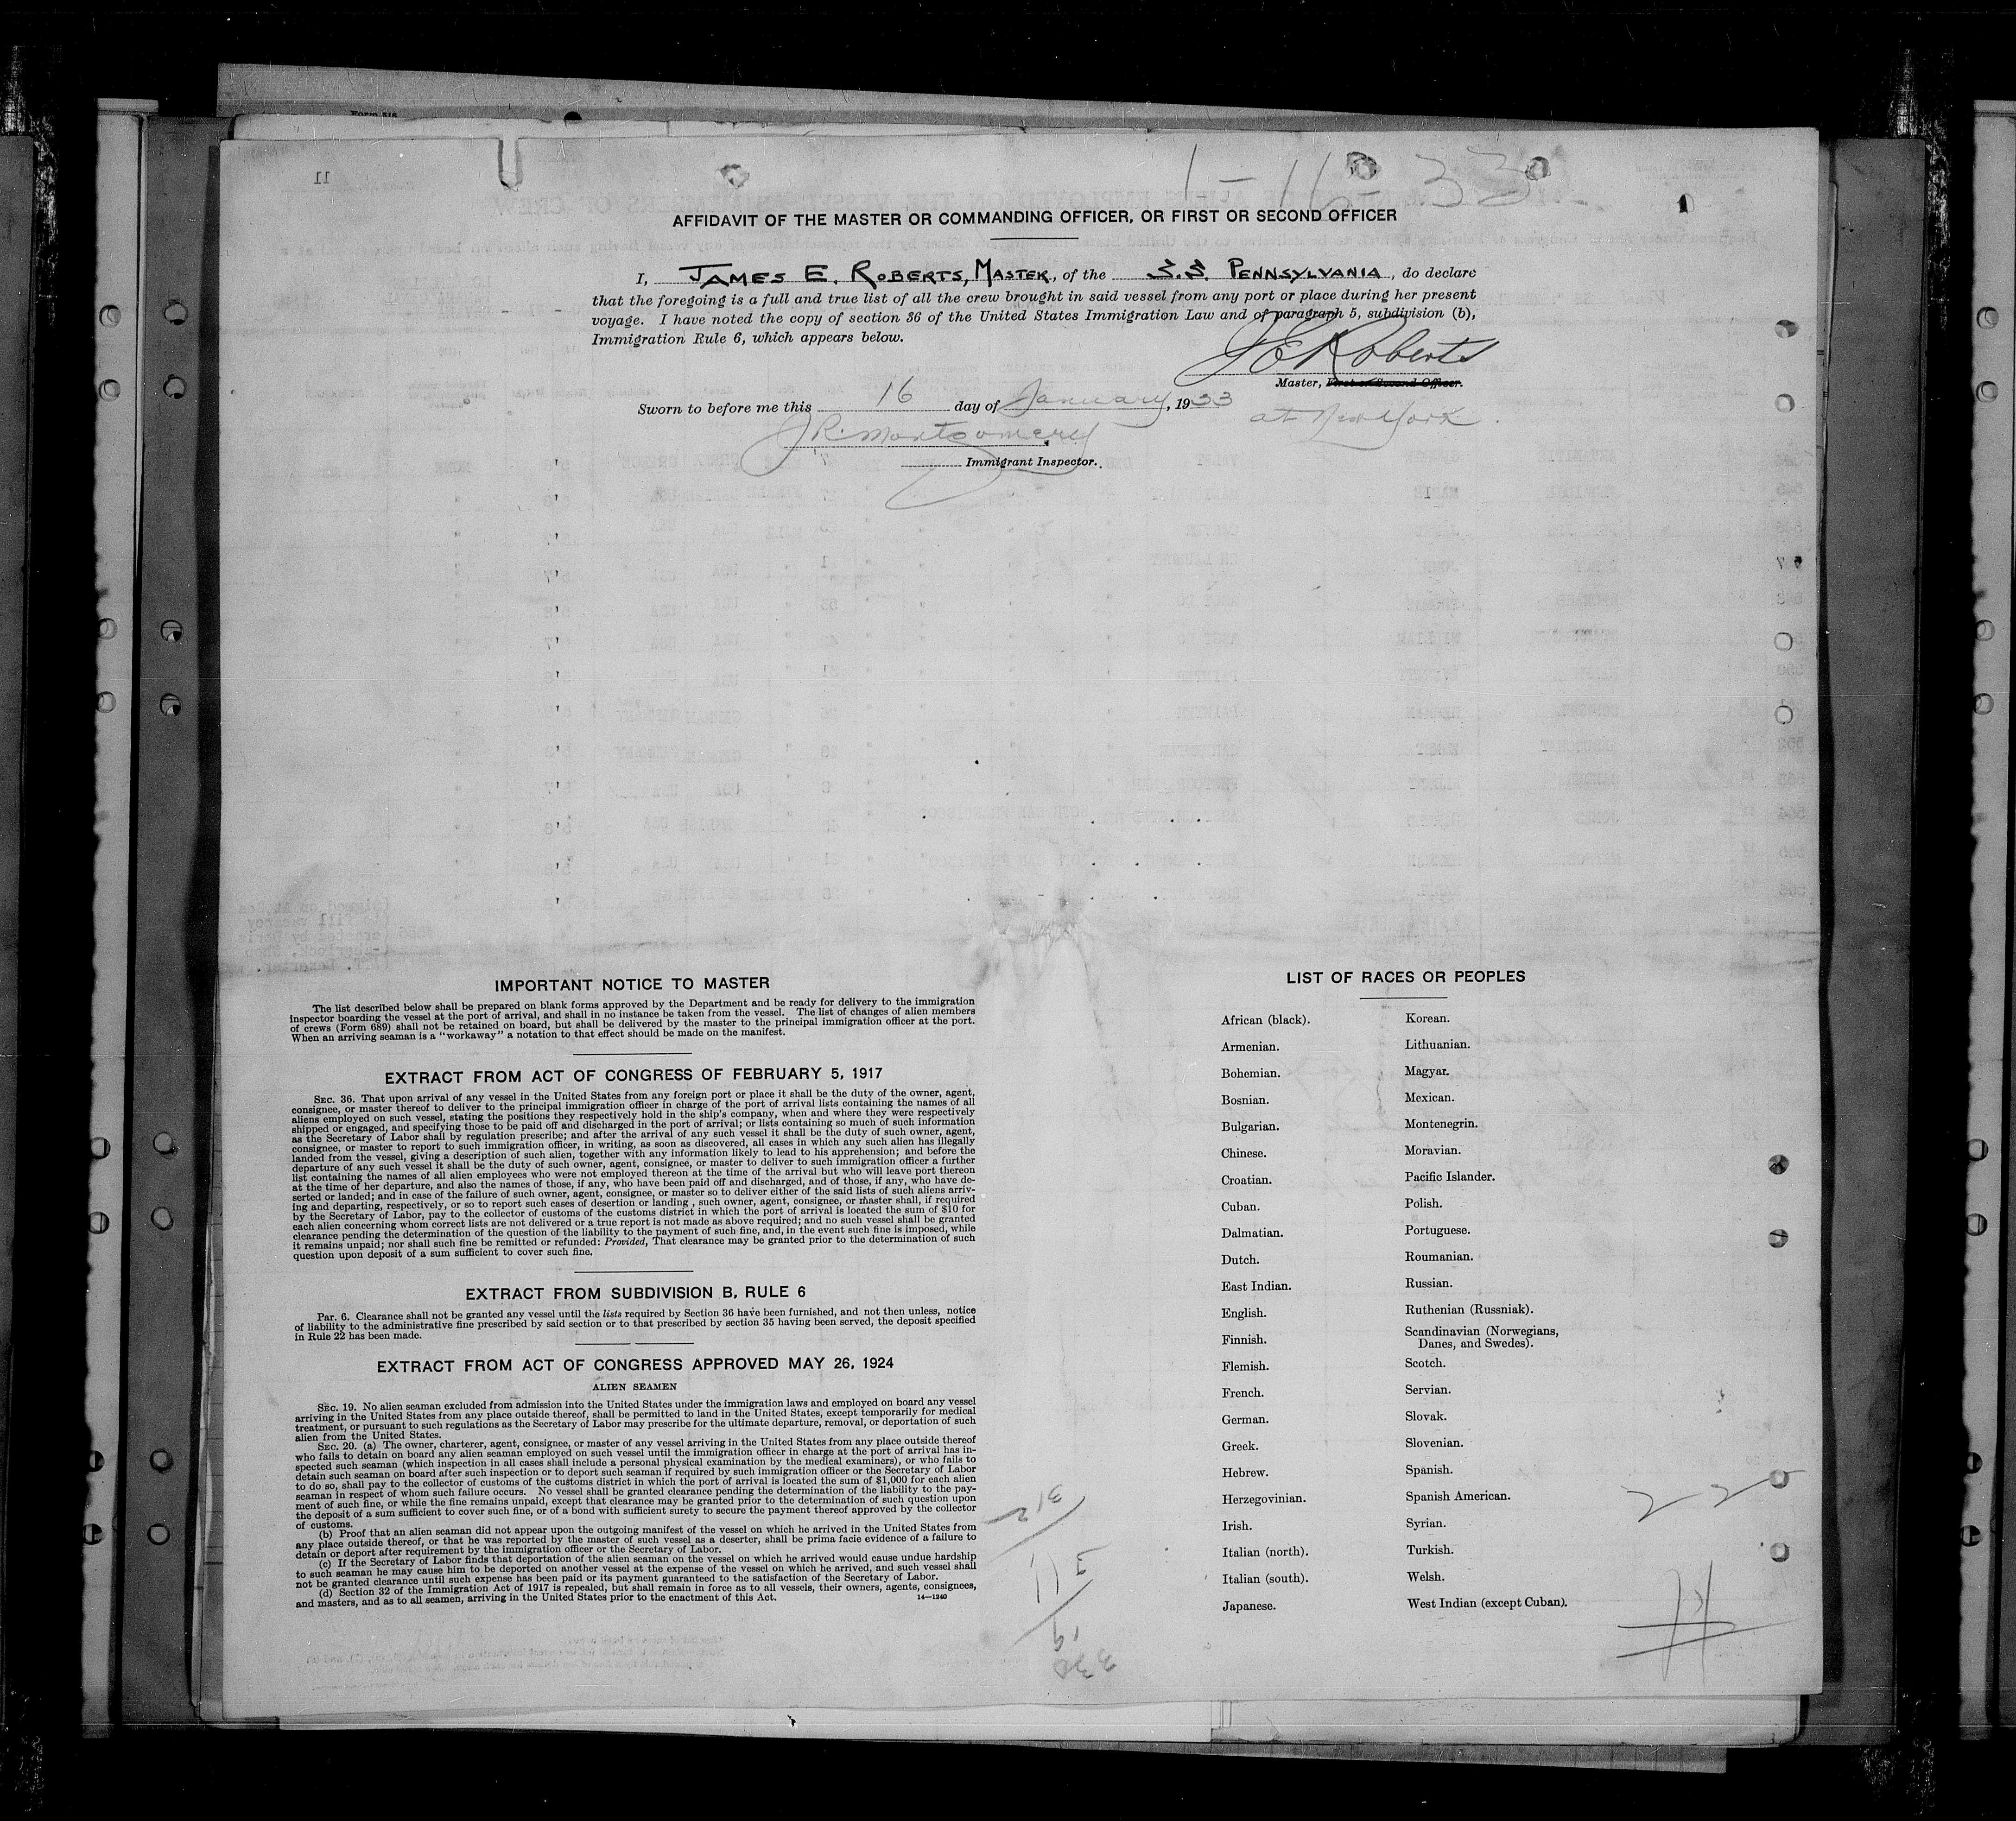 Form 516
1-16-33
AFFIDAVIT OF THE MASTER OR COMMANDING OFFICER, OR FIRST OR SECOND OFFICER
I, JAMES E. ROBERTS, MASTER, of the S.S. PENNSYLVANIA, do declare
that the foregoing is a full and true list of all the crew brought in said vessel from any port or place during her present
voyage. I have noted the copy of section 36 of the United States Immigration Law and of paragraph 5, subdivision (b),
Immigration Rule 6, which appears below.
J E Roberts
Master, First or Second Officer.
Sworn to before me this 16 day of January, 1933
at New York.
J R. Montgomery
Immigrant Inspector.
IMPORTANT NOTICE TO MASTER
The list described below shall be prepared on blank forms approved by the Department and be ready for delivery to the immigration
inspector boarding the vessel at the port of arrival, and shall in no instance be taken from the vessel. The list of changes of alien members
of crews (Form 689) shall not be retained on board, but shall be delivered by the master to the principal immigration officer at the port.
When an arriving seaman is a "workaway" a notation to that effect should be made on the manifest.
EXTRACT FROM ACT OF CONGRESS OF FEBRUARY 5, 1917
SEC. 36. That upon arrival of any vessel in the United States from any foreign port or place it shall be the duty of the owner, agent,
consignee, or master thereof to deliver to the principal immigration officer in charge of the port of arrival lists containing the names of all
aliens employed on such vessel, stating the positions they respectively hold in the ship's company, when and where they were respectively
shipped or engaged, and specifying those to be paid off and discharged in the port of arrival; or lists containing so much of such information
as the Secretary of Labor shall by regulation prescribe; and after the arrival of any such vessel it shall be the duty of such owner, agent,
consignee, or master to report to such immigration officer, in writing, as soon as discovered, all cases in which any such alien has illegally
landed from the vessel, giving a description of such alien, together with any information likely to lead to his apprehension; and before the
departure of any such vessel it shall be the duty of such owner, agent, consignee, or master to deliver to such immigration officer a further
list containing the names of all alien employees who were not employed thereon at the time of the arrival but who will leave port thereon
at the time of her departure, and also the names of those, if any, who have been paid off and discharged, and of those, if any, who have de-
serted or landed; and in case of the failure of such owner, agent, consignee, or master so to deliver either of the said lists of such aliens arriv-
ing and departing, respectively, or so to report such cases of desertion or landing , such owner, agent, consignee, or master shall, if required
by the Secretary of Labor, pay to the collector of customs of the customs district in which the port of arrival is located the sum of $10 for
each alien concerning whom correct lists are not delivered or a true report is not made as above required; and no such vessel shall be granted
clearance pending the determination of the question of the liability to the payment of such fine, and, in the event such fine is imposed, while
it remains unpaid; nor shall such fine be remitted or refunded: Provided, That clearance may be granted prior to the determination of such
question upon deposit of a sum sufficient to cover such fine.
EXTRACT FROM SUBDIVISION B, RULE 6
Par. 6. Clearance shall not be granted any vessel until the lists required by Section 36 have been furnished, and not then unless, notice
of liability to the administrative fine prescribed by said section or to that prescribed by section 35 having been served, the deposit specified
in Rule 22 has been made.
EXTRACT FROM ACT OF CONGRESS APPROVED MAY 26, 1924
ALIEN SEAMEN
SEC. 19. No alien seaman excluded from admission into the United States under the immigration laws and employed on board any vessel
arriving in the United States from any place outside thereof, shall be permitted to land in the United States, except temporarily for medical
treatment, or pursuant to such regulations as the Secretary of Labor may prescribe for the ultimate departure, removal, or deportation of such
alien from the United States.
SEC. 20. (a) The owner, charterer, agent, consignee, or master of any vessel arriving in the United States from any place outside thereof
who fails to detain on board any alien seaman employed on such vessel until the immigration officer in charge at the port of arrival has in-
spected such seaman (which inspection in all cases shall include a personal physical examination by the medical examiners), or who fails to
detain such seaman on board after such inspection or to deport such seaman if required by such immigration officer or the Secretary of Labor
to do so, shall pay to the collector of customs of the customs district in which the port of arrival is located the sum of $1,000 for each alien
seaman in respect of whom such failure occurs. No vessel shall be granted clearance pending the determination of the liability to the pay-
ment of such fine, or while the fine remains unpaid, except that clearance may be granted prior to the determination of such question upon
the deposit of a sum sufficient to cover such fine, or of a bond with sufficient surety to secure the payment thereof approved by the collector
of customs.
(b) Proof that an alien seaman did not appear upon the outgoing manifest of the vessel on which he arrived in the United States from
any place outside thereof, or that he was reported by the master of such vessel as a deserter, shall be prima facie evidence of a failure to
detain or deport after requirement by the immigration officer or the Secretary of Labor.
(c) If the Secretary of Labor finds that deportation of the alien seaman on the vessel on which he arrived would cause undue hardship
to such seaman he may cause him to be deported on another vessel at the expense of the vessel on which he arrived, and such vessel shall
not be granted clearance until such expense has been paid or its payment guaranteed to the satisfaction of the Secretary of Labor.
(d) Section 32 of the Immigration Act of 1917 is repealed, but shall remain in force as to all vessels, their owners, agents, consignees,
and masters, and as to all seamen, arriving in the United States prior to the enactment of this Act.
14—1240
LIST OF RACES OR PEOPLES
African (black).
Armenian.
Bohemian.
Bosnian.
Bulgarian.
Chinese.
Croatian.
Cuban.
Dalmatian.
Dutch.
East Indian.
English.
Finnish.
Flemish.
French.
German.
Greek.
Hebrew.
Herzegovinian.
Irish.
Italian (north).
Italian (south).
Japanese.
Korean.
Lithuanian.
Magyar.
Mexican.
Montenegrin.
Moravian.
Pacific Islander.
Polish.
Portuguese.
Roumanian.
Russian.
Ruthenian (Russniak).
Scandinavian (Norwegians,
Danes, and Swedes).
Scotch.
Servian.
Slovak.
Slovenian.
Spanish.
Spanish American.
Syrian.
Turkish.
Welsh.
West Indian (except Cuban).
22